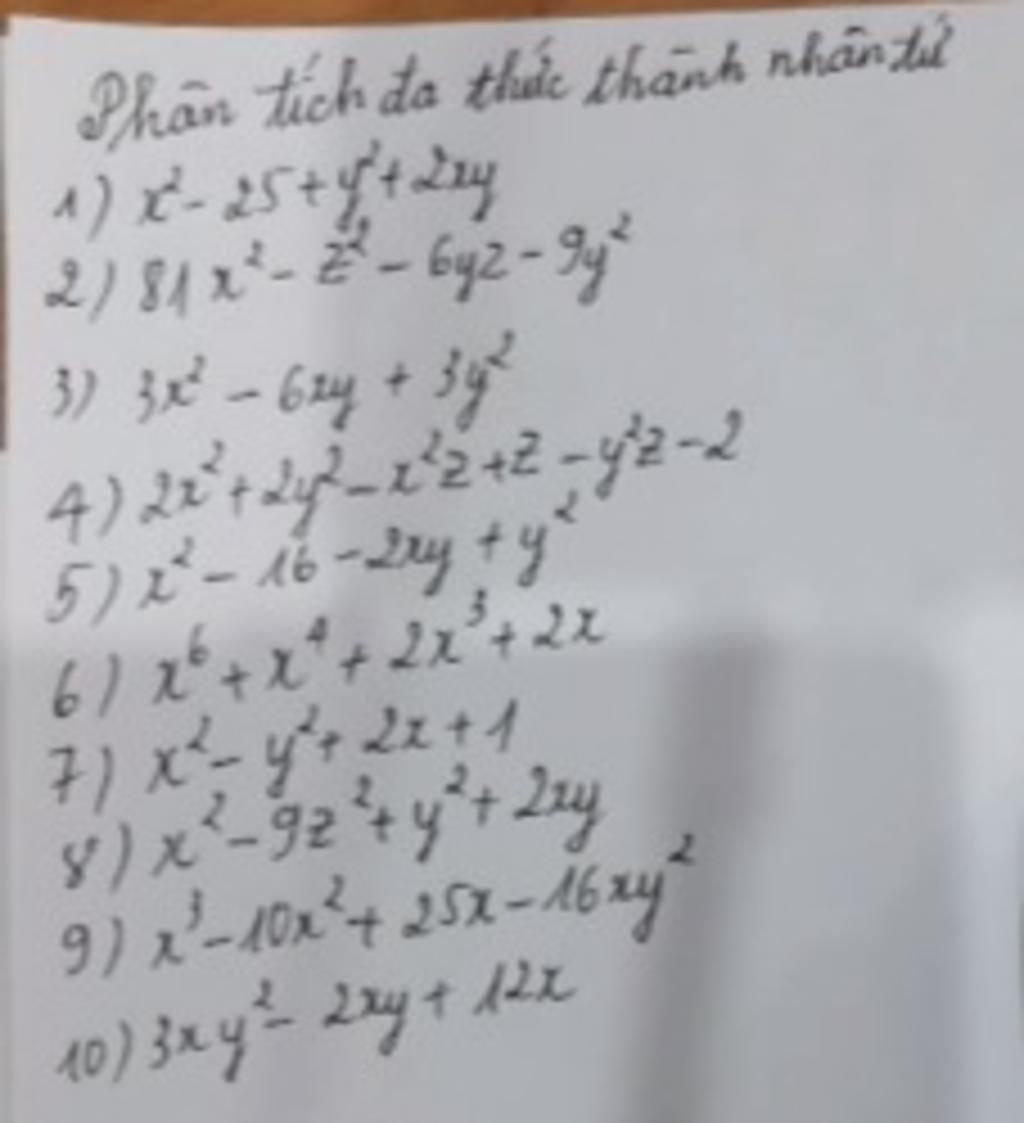 Phân tích đa thức thành nhân tử
1) x² - 25 + y² + 2xy
2) 81x² - z² - 6yz - 9y²
3) 3x² - 6xy + 3y²
4) 2x² + 2y² - x²z + z - y²z - 2
5) x² - 16 - 2xy + y²
6) x⁶ + x⁴ + 2x³ + 2x
7) x² - y² + 2x + 1
8) x² - 9z² + y² + 2xy
9) x³ - 10x² + 25x - 16xy²
10) 3xy² - 2xy + 12x